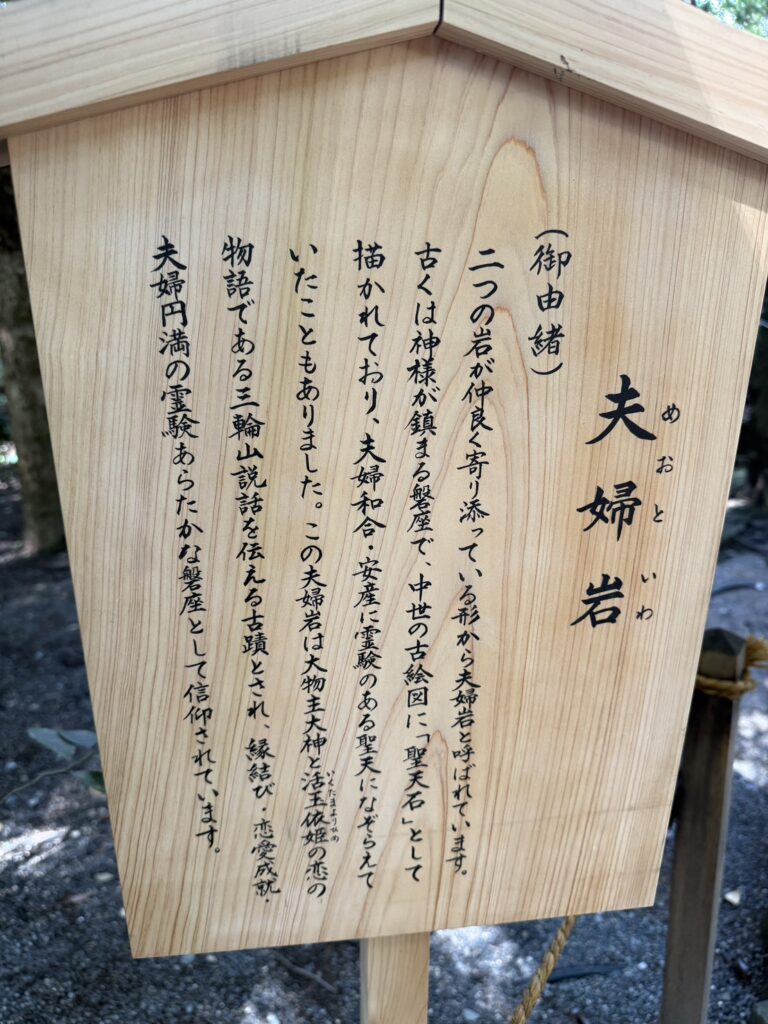 めおといわ
夫婦岩
(御由緒)
二つの岩が仲良く寄り添っている形から夫婦岩と呼ばれています。
古くは神様が鎮まる磐座で、中世の古絵図に「聖天石」として
描かれており、夫婦和合・安産に霊験のある聖天になぞらえて
いたこともありました。この夫婦岩は大物主大神と活玉依姫の恋の
いくたまよりひめ
物語である三輪山説話を伝える古蹟とされ、縁結び・恋愛成就・
夫婦円満の霊験あらたかな磐座として信仰されています。